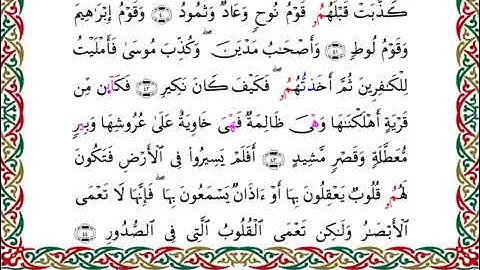 كَذَّبَتْ قَبْلَهُمُۥ قَوْمُ نُوحٍ وَعَادٌ وَثَمُودُ ٤٠ وَقَوْمُ إِبْرَٰهِيمَ
وَقَوْمُ لُوطٍ ٤١ وَأَصْحَٰبُ مَدْيَنَۖ وَكُذِّبَ مُوسَىٰ فَأَمْلَيْتُ
لِلْكَٰفِرِينَ ثُمَّ أَخَذتُّهُمُۥۖ فَكَيْفَ كَانَ نَكِيرِ ٤٢ فَكَآئِن مِّن
قَرْيَةٍ أَهْلَكْنَٰهَا وَهْىَ ظَالِمَةٌ فَهْىَ خَاوِيَةٌ عَلَىٰ عُرُوشِهَا وَبِيرٍ
مُّعَطَّلَةٍ وَقَصْرٍ مَّشِيدٍ ٤٣ أَفَلَمْ يَسِيرُوا۟ فِى ٱلْأَرْضِ فَتَكُونَ
لَهُمُۥ قُلُوبٌ يَعْقِلُونَ بِهَا أَوْ ءَاذَانٌ يَسْمَعُونَ بِهَاۖ فَإِنَّهَا لَا تَعْمَى
ٱلْأَبْصَٰرُ وَلَٰكِن تَعْمَى ٱلْقُلُوبُ ٱلَّتِى فِى ٱلصُّدُورِ ٤٤